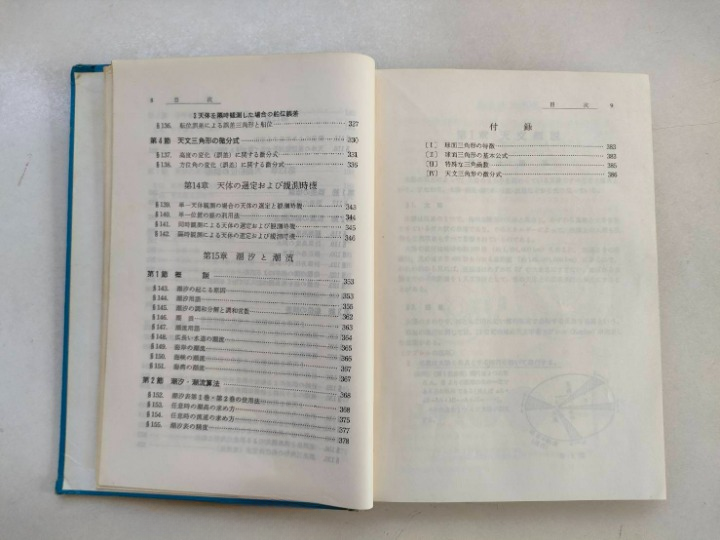 8 目 次
I 天体を隔時観測した場合の船位誤差
§136. 船位誤差による誤差三角形と船位 327
第4節 天文三角形の微分式 330
§137. 高度の変化(誤差)に関する微分式 331
§138. 方位角の変化(誤差)に関する微分式 335
第14章 天体の選定および観測時機
§139. 単一天体観測の場合の天体の選定と観測時機 343
§140. 単一位置の線の利用法 344
§141. 同時観測による天体の選定および観測時機 345
§142. 隔時観測による天体の選定および観測時機 346
第15章 潮汐と潮流
第1節 概 説 353
§143. 潮汐の起こる原因 353
§144. 潮汐用語 353
§145. 潮汐の調和分解と調和常数 355
§146. 潮 流 362
§147. 潮流用語 363
§148. 広長い水道の潮流 364
§149. 沿岸の潮流 365
§150. 海峡の潮流 366
§151. の潮流 367
第2節 潮汐・潮流算法 367
§152. 潮汐表第1巻・第2巻の使用法 368
§153. 任意時の潮高の求め方 368
§154. 任意時の流速の求め方 375
§155. 潮汐表の精度 377
378
目 次 9
付 録
〔I〕 球面三角形の特徴 382
〔II〕 球面三角形の基本公式 383
〔III〕 特殊な三角函数 385
〔IV〕 天文三角形の微分式 386